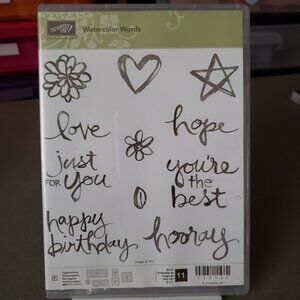 STAMPIN' UP!
Watercolor Words
love
hope
just
FOR you
you're
the
best
happy
birthday
hooray
11